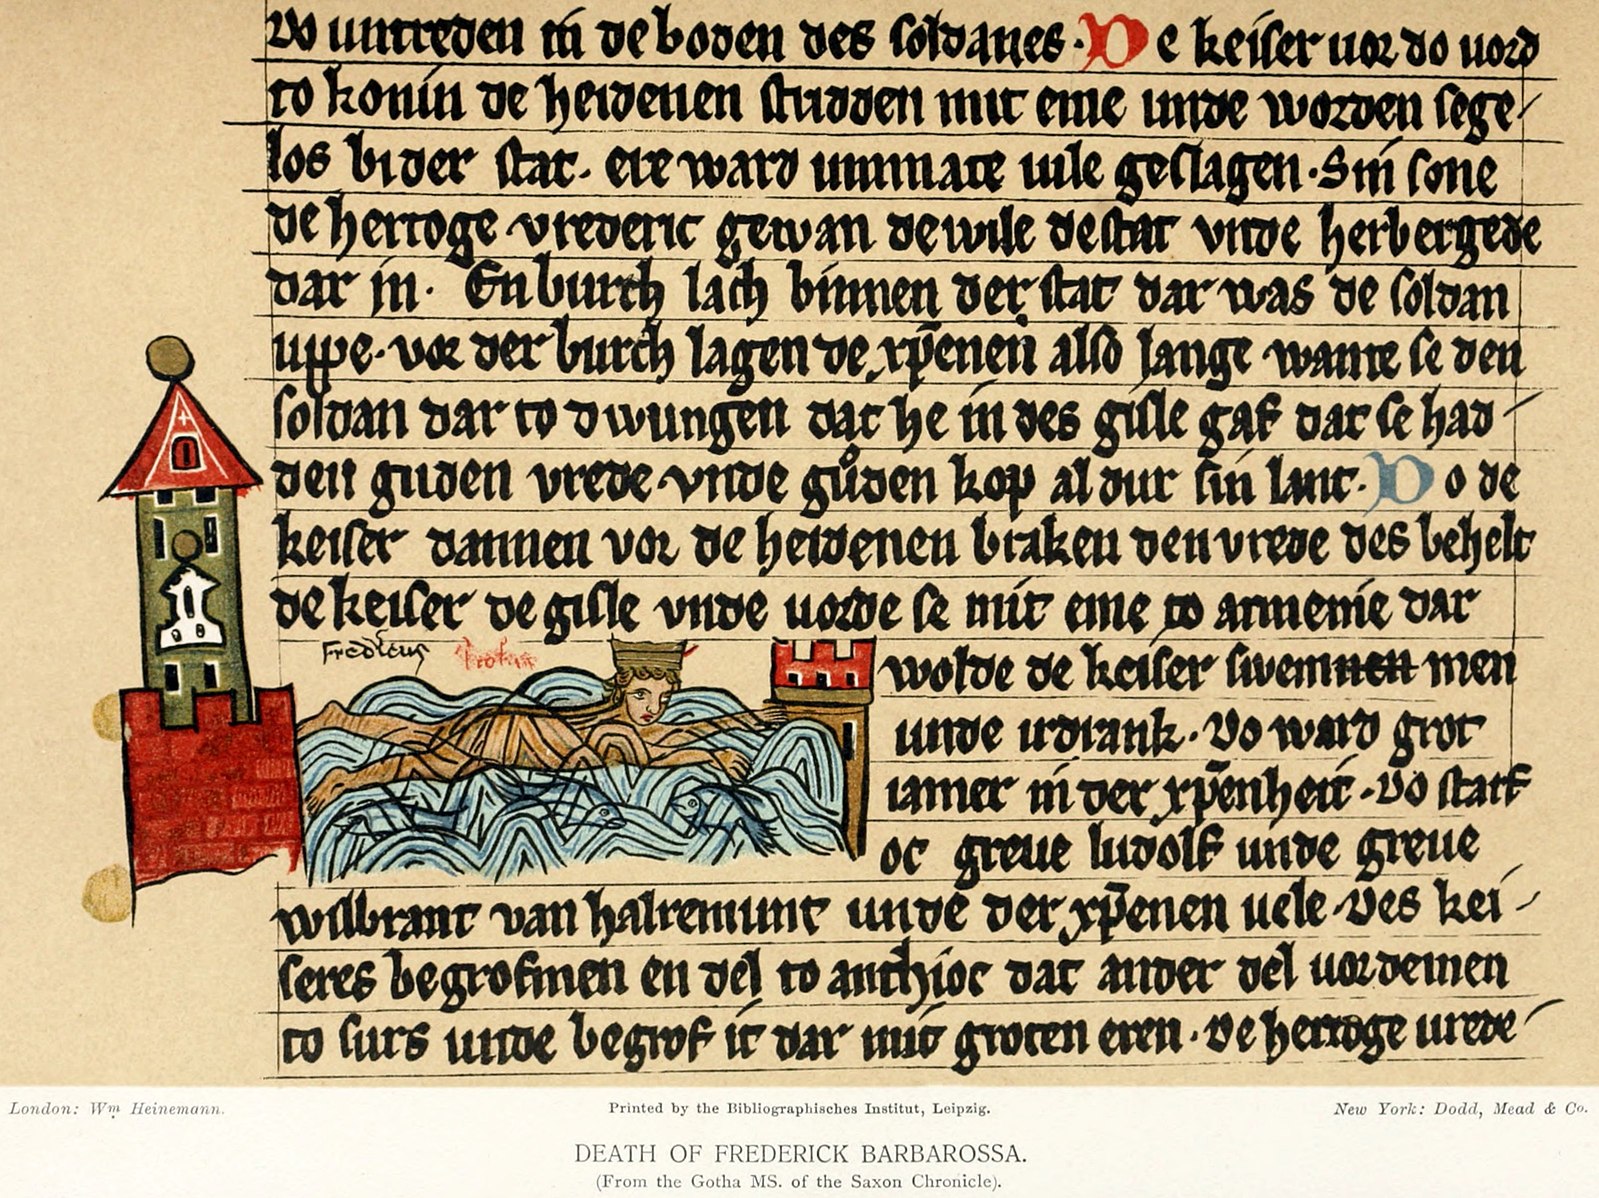 vo untreden in de boden des soldanes. De keiser vor do vord
to konin de heidenen studden mit eme unde worden sege-
los bi der stat. ere ward unmate vile geslagen. Sin sone
de hertoge vrederic gewan dewile de stat vnde herbergede
dar in. En burch lach binnen der stat dar was de soldan
uppe. vor der burch lagen de xp̄enen also lange wante se den
soldan dar to dwungen dat he in des gisle gaf dat se had-
den guden vrede vnde gůden kop al dur sin lant. Do de
keiser dannen vor de heidenen braken den vrede des behelt
de keiser de gisle vnde uorde se mit eme to armenie dar
Fredicus
wolde de keiser swemmen men
unde irdrank. Do ward grot
iamer in der xp̄enheit. Do starf
oc greue ludolf unde greue
wilbrant van halremunt unde der xp̄enen uele. Des kei-
seres begrofmen en del to anthioc dat ander del uordemen
to surs unde begrof it dar mit groten eren. De hertoge urede-
London: Wm. Heinemann.
Printed by the Bibliographisches Institut, Leipzig.
New York: Dodd, Mead & Co.
DEATH OF FREDERICK BARBAROSSA.
(From the Gotha MS. of the Saxon Chronicle).